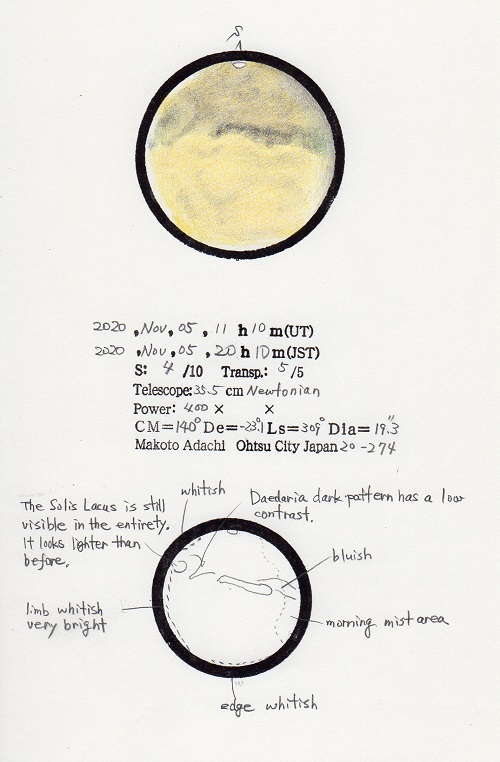 S
2020, Nov, 05, 11 h 10 m(UT)
2020, Nov, 05, 20 h 10 m(JST)
S: 4 /10 Transp.: 5 /5
Telescope: 35.5 cm Newtonian
Power: 400 × ×
CM=140° De=-23.1 Ls=309° Dia=19.3"
Makoto Adachi Ohtsu City Japan 20-274
whitish
The Solis Lacus is still
visible in the entirety.
It looks lighter than
before.
Daedaria dark pattern has a low
contrast.
bluish
limb whitish
very bright
morning mist area
edge whitish